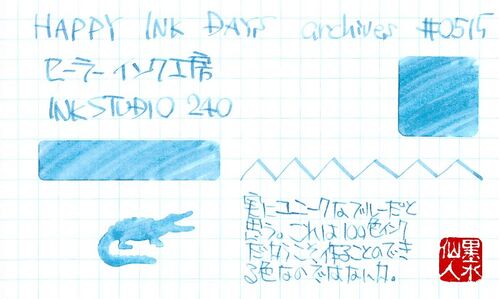 HAPPY INK DAYS archives #0515
セーラーインク工房
INK STUDIO 240
実にユニークなブルーだと
思う。これは100色インク
だからこそ作ることのでき
る色なのではなないか。
墨水
仙人